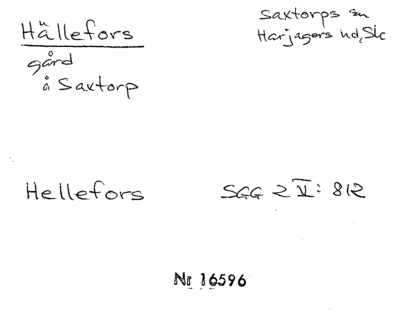 Hällefors
gård
å Saxtorp
Saxtorps sn
Harjagers hd, Sk
Hellefors
SGG 2 V: 812
Nr 16596